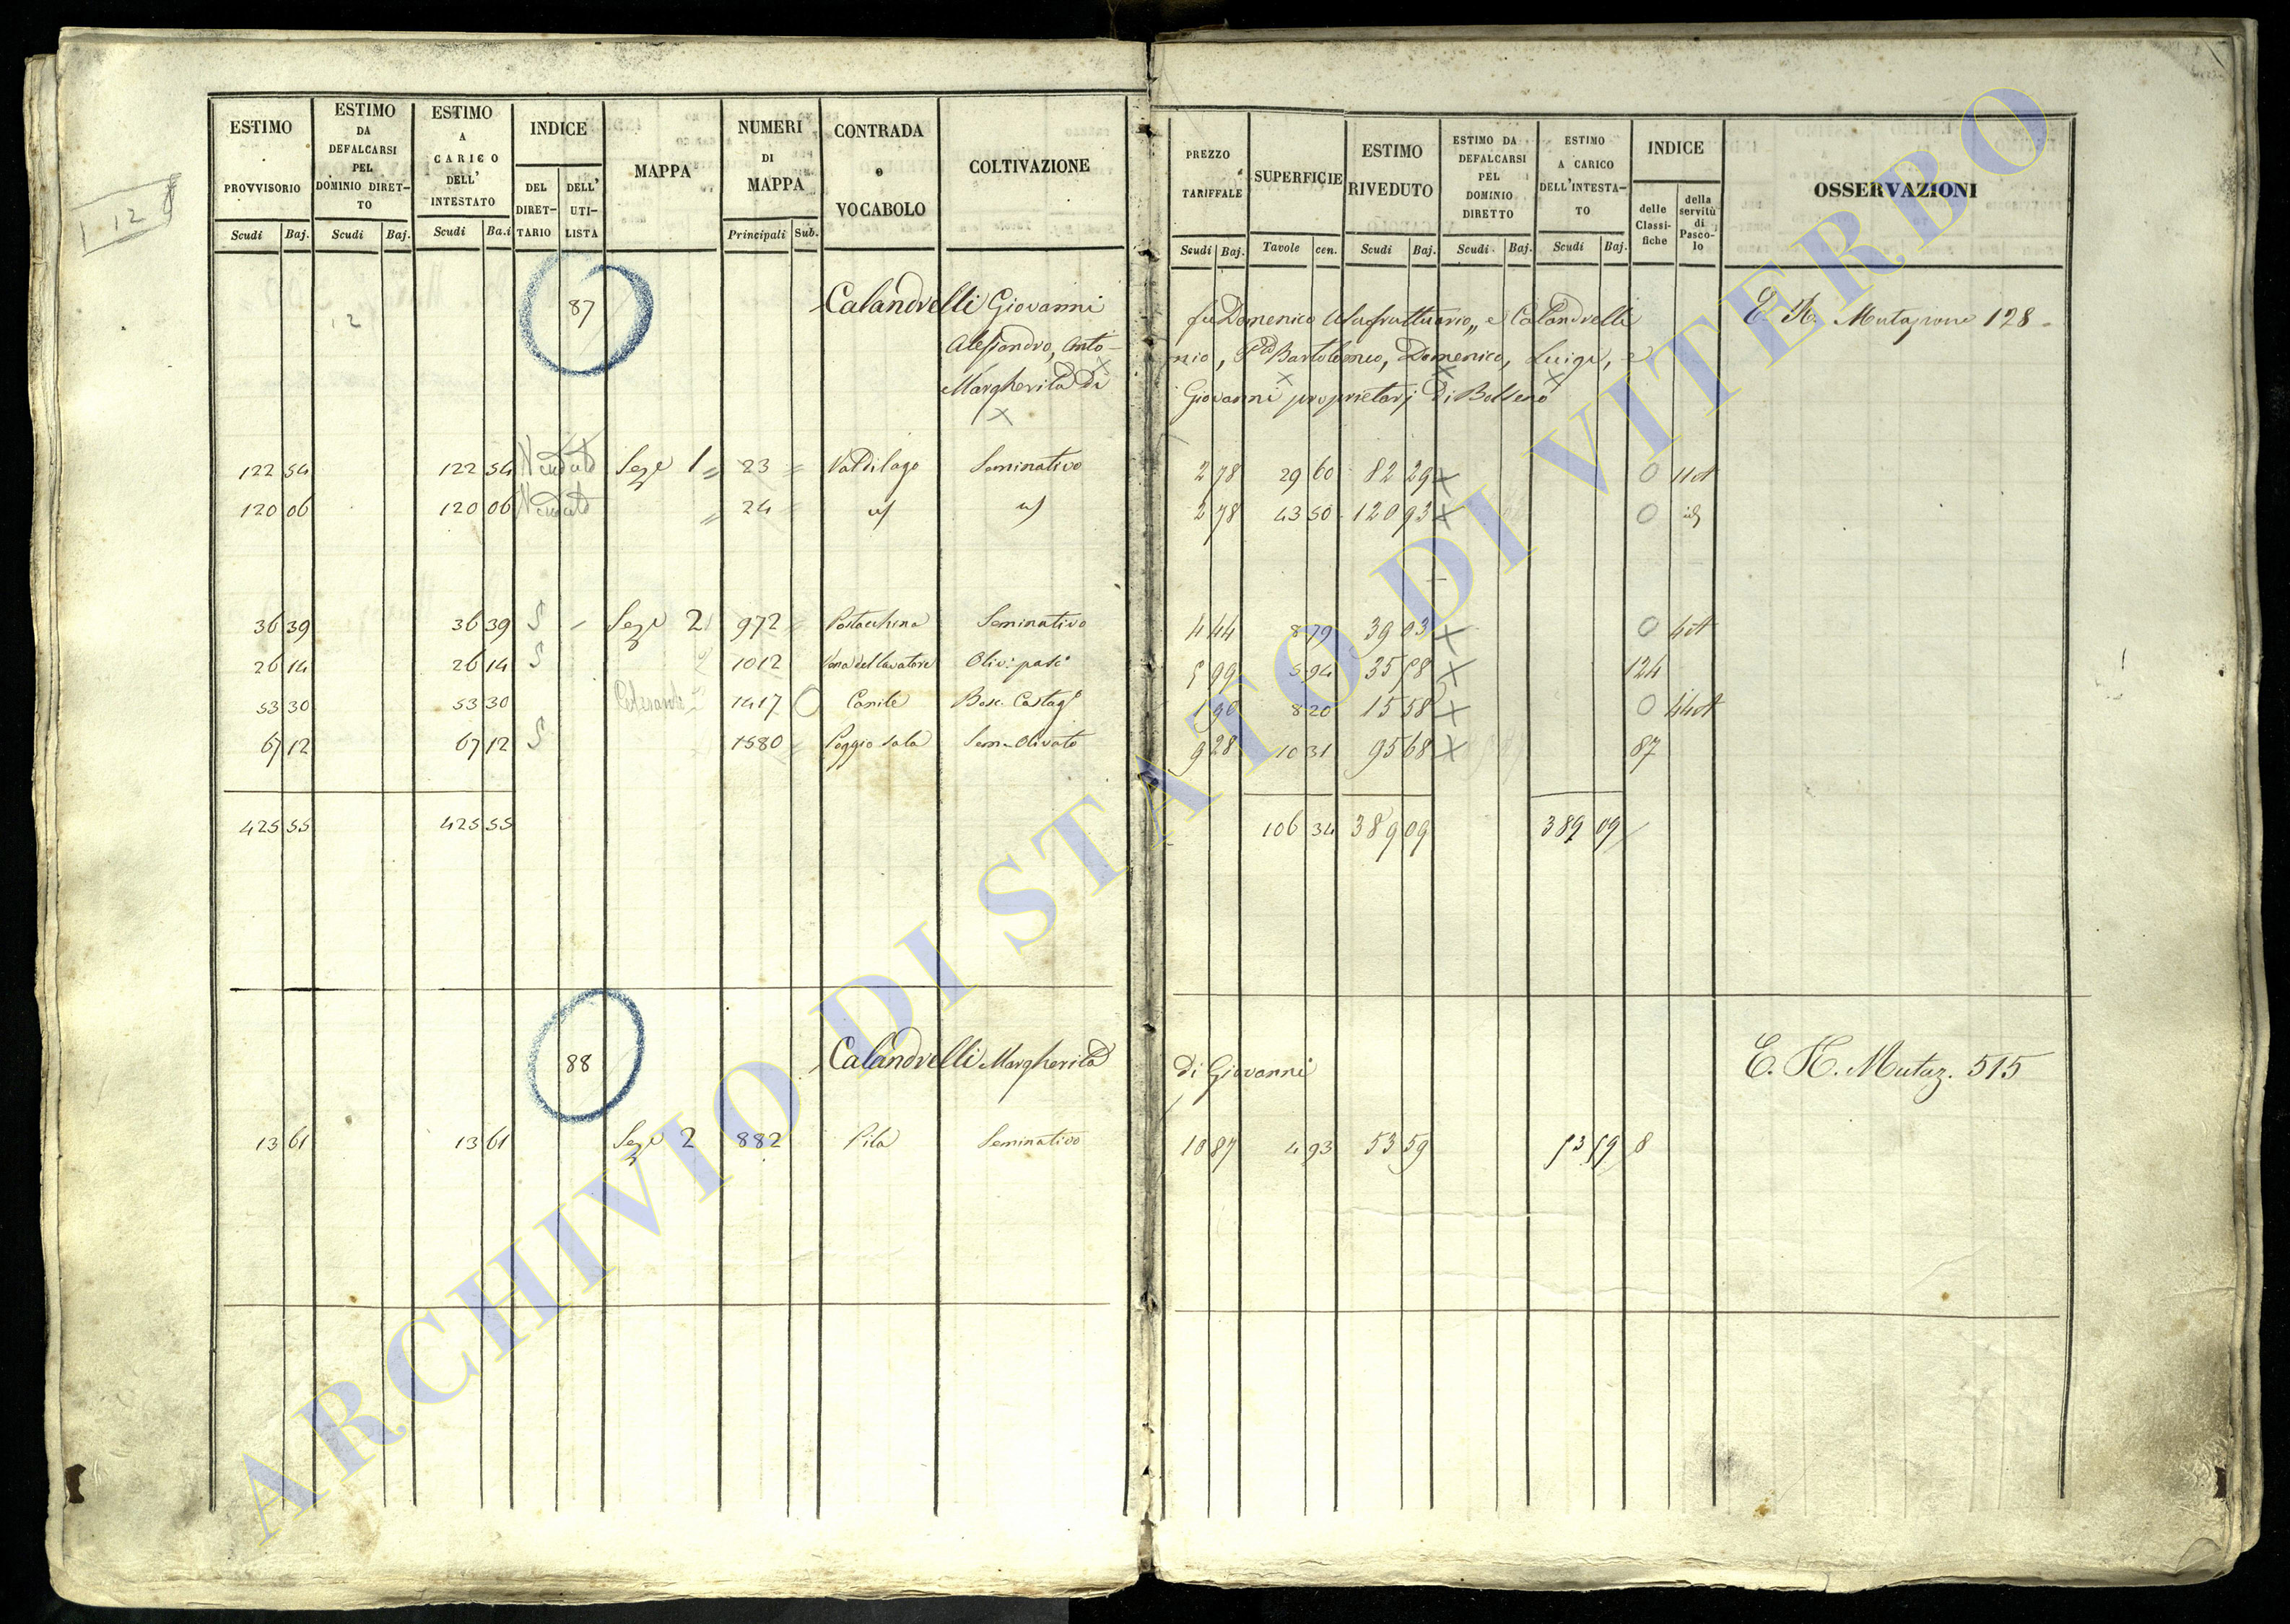 ESTIMO PROVVISORIO Scudi Baj.
ESTIMO DA DEFALCARSI PEL DOMINIO DIRET-TO Scudi Baj.
ESTIMO A CARICO DELL' INTESTATO Scudi Ba.i
INDICE DEL DIRET-TARIO DELL' UTI-LISTA
MAPPA
NUMERI DI MAPPA Principali Sub.
CONTRADA o VOCABOLO
COLTIVAZIONE
PREZZO TARIFFALE Scudi Baj.
SUPERFICIE Tavole cen.
ESTIMO RIVEDUTO Scudi Baj.
ESTIMO DA DEFALCARSI PEL DOMINIO DIRETTO Scudi Baj.
ESTIMO A CARICO DELL'INTESTA-TO Scudi Baj.
INDICE delle Classi-fiche della servitù di Pasco-lo
OSSERVAZIONI
12
12
87 Calandrelli Giovanni fu Domenico Usufruttuario,, e Calandrelli E. N. Mutazione 128
Alessandro, Anto-nio, Bartolomeo, Domenico, Luigi, e
Margherita di Giovanni proprietarj di Bolsena
122 54 122 54 Venduto Seze 1 23 Valdilago Seminativo 2 78 29 60 82 29 0 11 ot
120 06 120 06 Venduto 24 2 78 43 50 120 93 0 id
36 39 36 39 S Seze 2 972 Seminativo 4 44 8 79 39 03 0 4 ot
26 14 26 14 S 1012 Oliv: pasc 5 99 5 94 35 58 124
53 30 53 30 1417 0 Canile Bosc. Castag 1 90 8 20 15 58 0
67 12 67 12 S 1580 Poggio Sala Sem. Olivato 9 28 10 31 95 68 87
425 55 425 55 106 34 389 09 389 09
88 Calandrelli Margherita di Giovanni E. N. Mutaz. 515
13 61 13 61 Seze 2 882 Pila Seminativo 10 87 4 93 53 59 53 59 8
ARCHIVIO DI STATO DI VITERBO